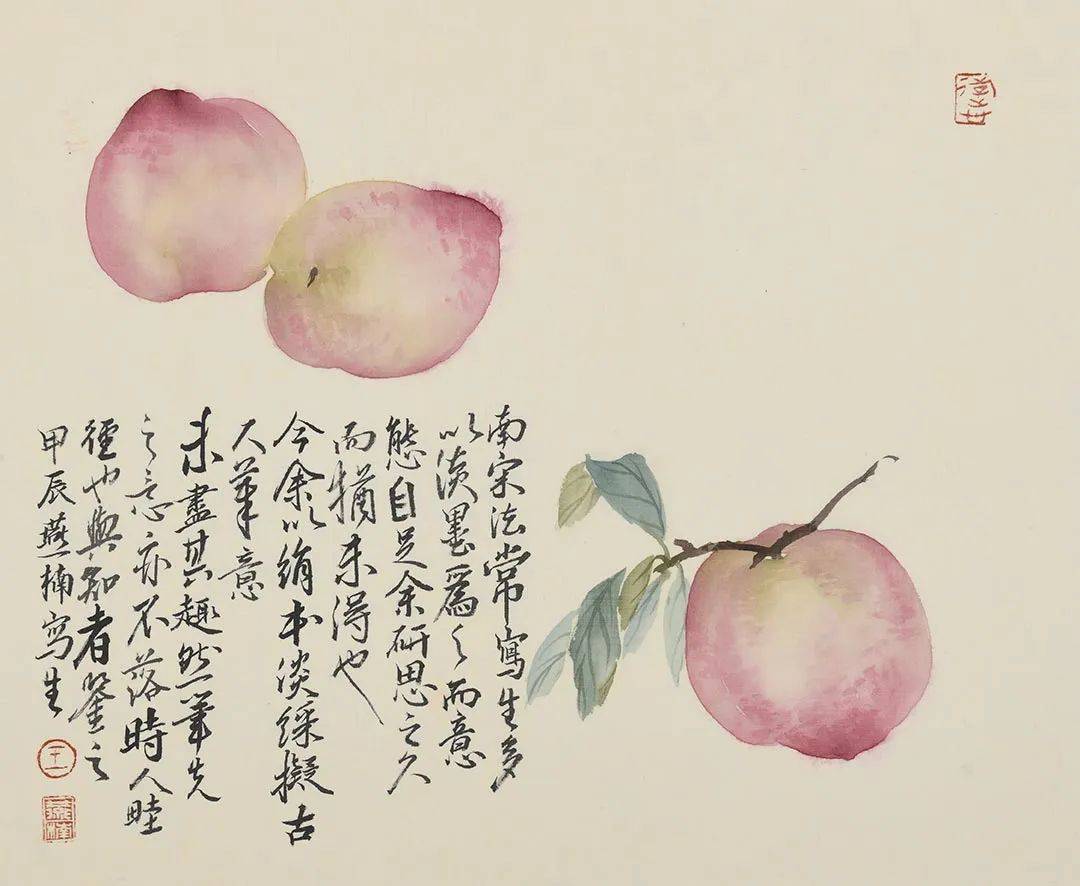 南宋法常寫生多
以淡墨爲之而意
態自足余研思之久
而猶未得也
今余以絹本淡綵擬古
人筆意
未盡其趣然筆先
之意亦不落時人畦
徑也與知者鑒之
甲辰燕楠写生
王
燕楠